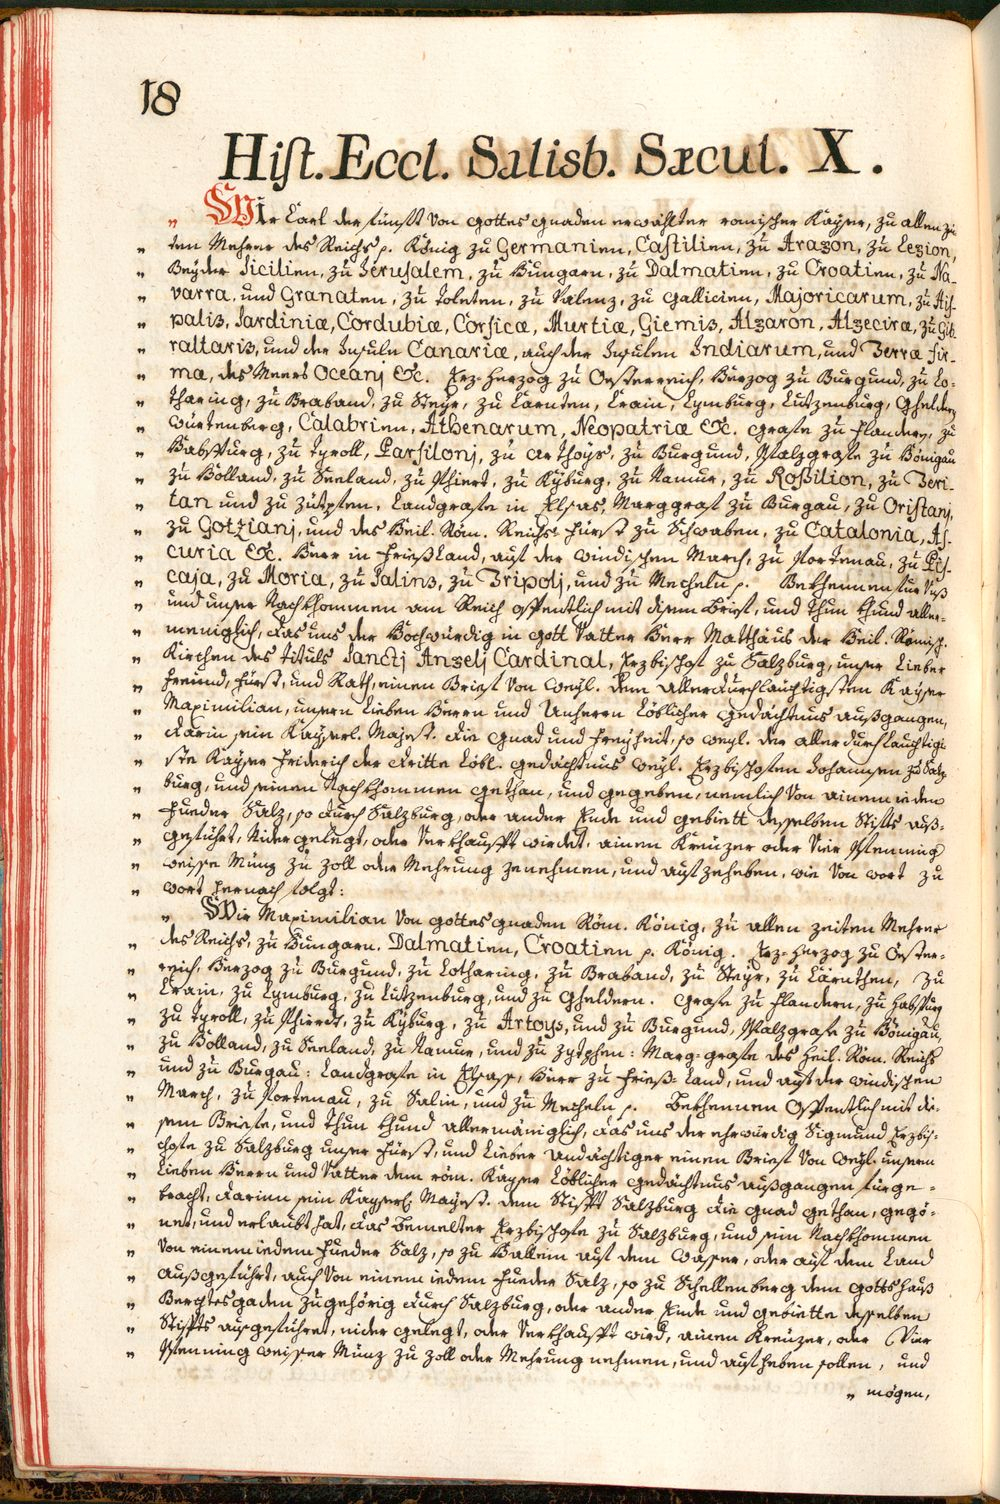 18
Hist. Eccl. Salisb. Sæcul. X.
„ Wir Carl der fünfft von gottes gnaden erwählter römischer Kayser, zu allen zei-
„ ten Mehrer des Reichs p. König zu Germanien, Castilien, zu Aragon, zu Legion,
„ Beyder Sicilien, zu Jerusalem, zu Hungarn, zu Dalmatien, zu Croatien, zu Na-
„ varra, und Granaten, zu Toleten, zu Valenz, zu Gallicien, Majoricarum, zu His-
„ palis, Sardiniæ, Cordubiæ, Corsicæ, Murtiæ, Giemis, Algaron, Algeciræ, zu Gib-
„ raltaris, und der Insuln Canariæ, auch der Insulen Indiarum, und Terræ fir-
„ mæ, des Meers Oceanj &c. Erz-Herzog zu Oesterreich, Herzog zu Burgund, zu Lo-
„ tharing, zu Braband, zu Steyr, zu Cärnten, Crain, Lymburg, Lützenburg, Gheldern,
„ Würtenberg, Calabrien, Athenarum, Neopatriæ &c. Grafe zu Flandern, zu
„ Habspurg, zu Tyroll, Parsilonj, zu Arthoys, zu Burgund, Pfalzgrafe zu Hönigau
„ zu Holland, zu Seeland, zu Phiert, zu Kyburg, zu Namur, zu Roßilion, zu Teri-
„ tan und zu zütpfen, Landgrafe in Elsas, Marggraf zu Burgau, zu Oristanj,
„ zu Gotzianj, und des Heil. Röm. Reichs Fürst zu Schwaben, zu Catalonia, As-
„ curia &c. Herr in Frießland, auf der windischen March, zu Portenau, zu Pis-
„ caja, zu Moria, zu Salins, zu Tripolj, und zu Mecheln p. Bekhennen für Unß
„ und unser Nachkhommen am Reich offentlich mit disem Brief, und thun khund aller-
„ meniglich, das uns der Hochwürdig in gott Vatter Herr Matthäus der Heil. Römisch.
„ Kirchen des Tituls Sanctj Angelj Cardinal, Erzbischof zu Salzburg, unser Lieber
„ Freünd, Fürst, und Rath, einen Brief von weyl. dem allerdurchlauchtigsten Kayser
„ Maximilian, unsern Lieben Herrn und Anherrn Löblicher gedächtnus außgangen,
„ darin sein Kayserl. Majest. die gnad und freyheit, so weyl. der allerdurchlauchtigi-
„ ste Kayser Friderich der dritte Löbl. gedächtnus weyl. Erzbischofen Johannsen zu Salz-
„ burg, und seinen Nachkhommen gethan, und gegeben, nemlich von ainem ieden
„ fueder Salz, so durch Salzburg, oder ander Ende und gebiett desselben Stiffts auß-
„ geführt, Nider gelegt, oder verkhaufft wirdet, ainen Kreüzer oder vier Pfenning
„ weisse Münz zu zoll oder Mehrung zenehmen, und aufzeheben, wie von wort zu
„ wort hernach folgt:
„ Wir Maximilian von gottes gnaden Röm. König, zu allen zeiten Mehrer
„ des Reichs, zu Hungarn, Dalmatien, Croatien p. König. Erz-Herzog zu Oester-
„ reich, Herzog zu Burgund, zu Lotharing, zu Braband, zu Steyr, zu Cärnthen, zu
„ Crain, zu Lymburg, zu Lützenburg, und zu Gheldern. Grafe zu Flandern, zu Habspurg
„ zu Tyroll, zu Phierdt, zu Kyburg, zu Artoys, und zu Burgund, Pfalzgrafe zu Hönigau,
„ zu Holland, zu Seeland, zu Namur, und zu zytphen: Marg-grafe des Heil. Röm. Reichs
„ und zu Burgau: Landgrafe in Elsass, Herr zu Frieß-Land, und auf der windischen
„ March, zu Portenau, zu Salin, und zu Mecheln p. Bekhennen Offentlich mit di-
„ sem Briefe, und thun khund allermäniglich, das uns der ehrwürdig Sigmund Erzbisch-
„ chofe zu Salzburg unser Fürst, und Lieber andächtiger einen Brief von weyl. unserm
„ Lieben Herrn und Vatter dem röm. Kayser Löblicher gedächtnus außgangen fürge-
„ bracht, darinn sein Kayserl. Mayest. dem Stifft Salzburg die gnad gethan, gegö-
„ net, und erlaubt hat, das bemelter Erzbischofe zu Salzburg, und sein Nachkhommen
„ von einem iedem fueder Salz, so zu Hallein auf dem wasser, oder auf dem Land
„ außgeführt, auch von einem iedem fueder Salz, so zu Schellenberg dem gottshauß
„ Berchtesgaden zugehörig durch Salzburg, oder ander Ende und gebiette desselben
„ Stiffts ausgeführet, nider gelegt, oder verkhaufft wird, ainen Kreüzer, oder vier
„ Pfenning weisser Münz zu zoll oder Mehrung nehmen, und aufheben sollen, und
„ mögen,